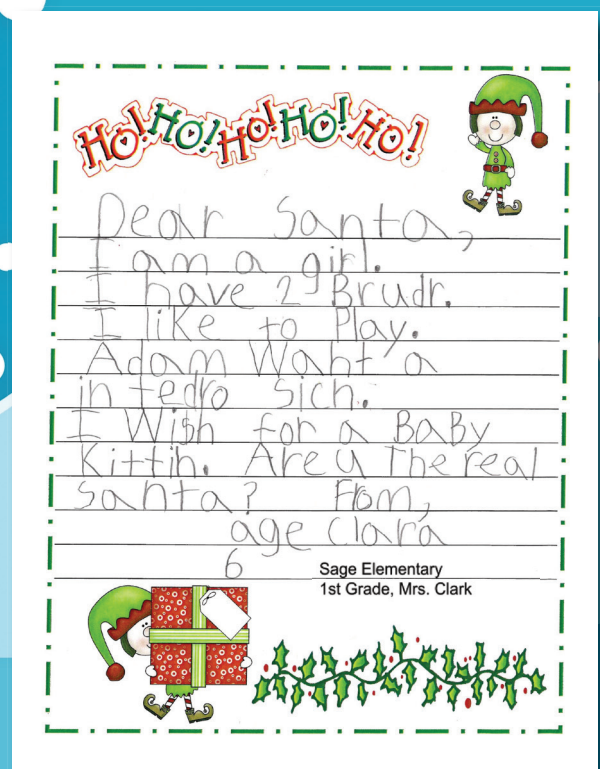 HO! HO! HO! HO! HO!
Dear Santa,
I am a girl.
I have 2 Brudr.
I like to Play.
Adam Waht a
in tedro sich.
I Wish for a BaBy
Kittih. Are u The real
Santa? From,
age Clara
6
Sage Elementary
1st Grade, Mrs. Clark